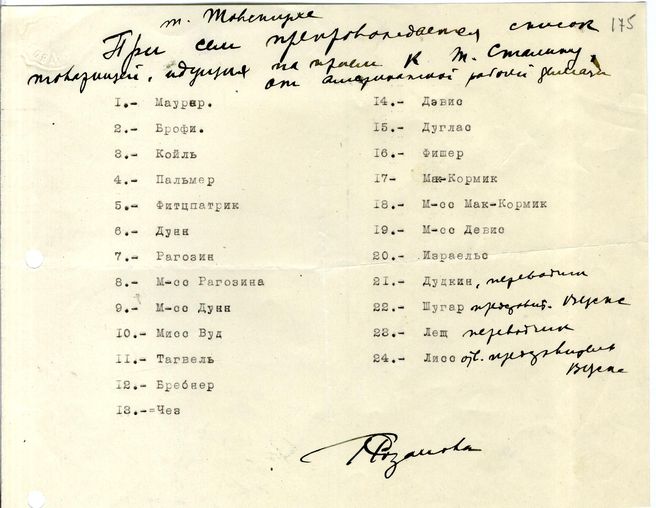 т. Товстухе
175
При сем препровождается список
товарищей, идущих на прием к т. Сталину,
от американской рабочей делегации
1.- Маурер.
2.- Брофи.
3.- Койль
4.- Пальмер
5.- Фитцпатрик
6.- Дунн
7.- Рагозин
8.- М-сс Рагозина
9.- М-сс Дунн
10.- Мисс Вуд
11.- Тагвель
12.- Бребнер
13.-=Чез
14.- Дэвис
15.- Дуглас
16.- Фишер
17- Мак-Кормик
18.- М-сс Мак-Кормик
19.- М-сс Девис
20.- Израельс
21.- Дудкин, переводчик
22.- Шугар представит. ВЦСПС
23.- Лещ переводчик
24.- Лисс отв. представитель
ВЦСПС